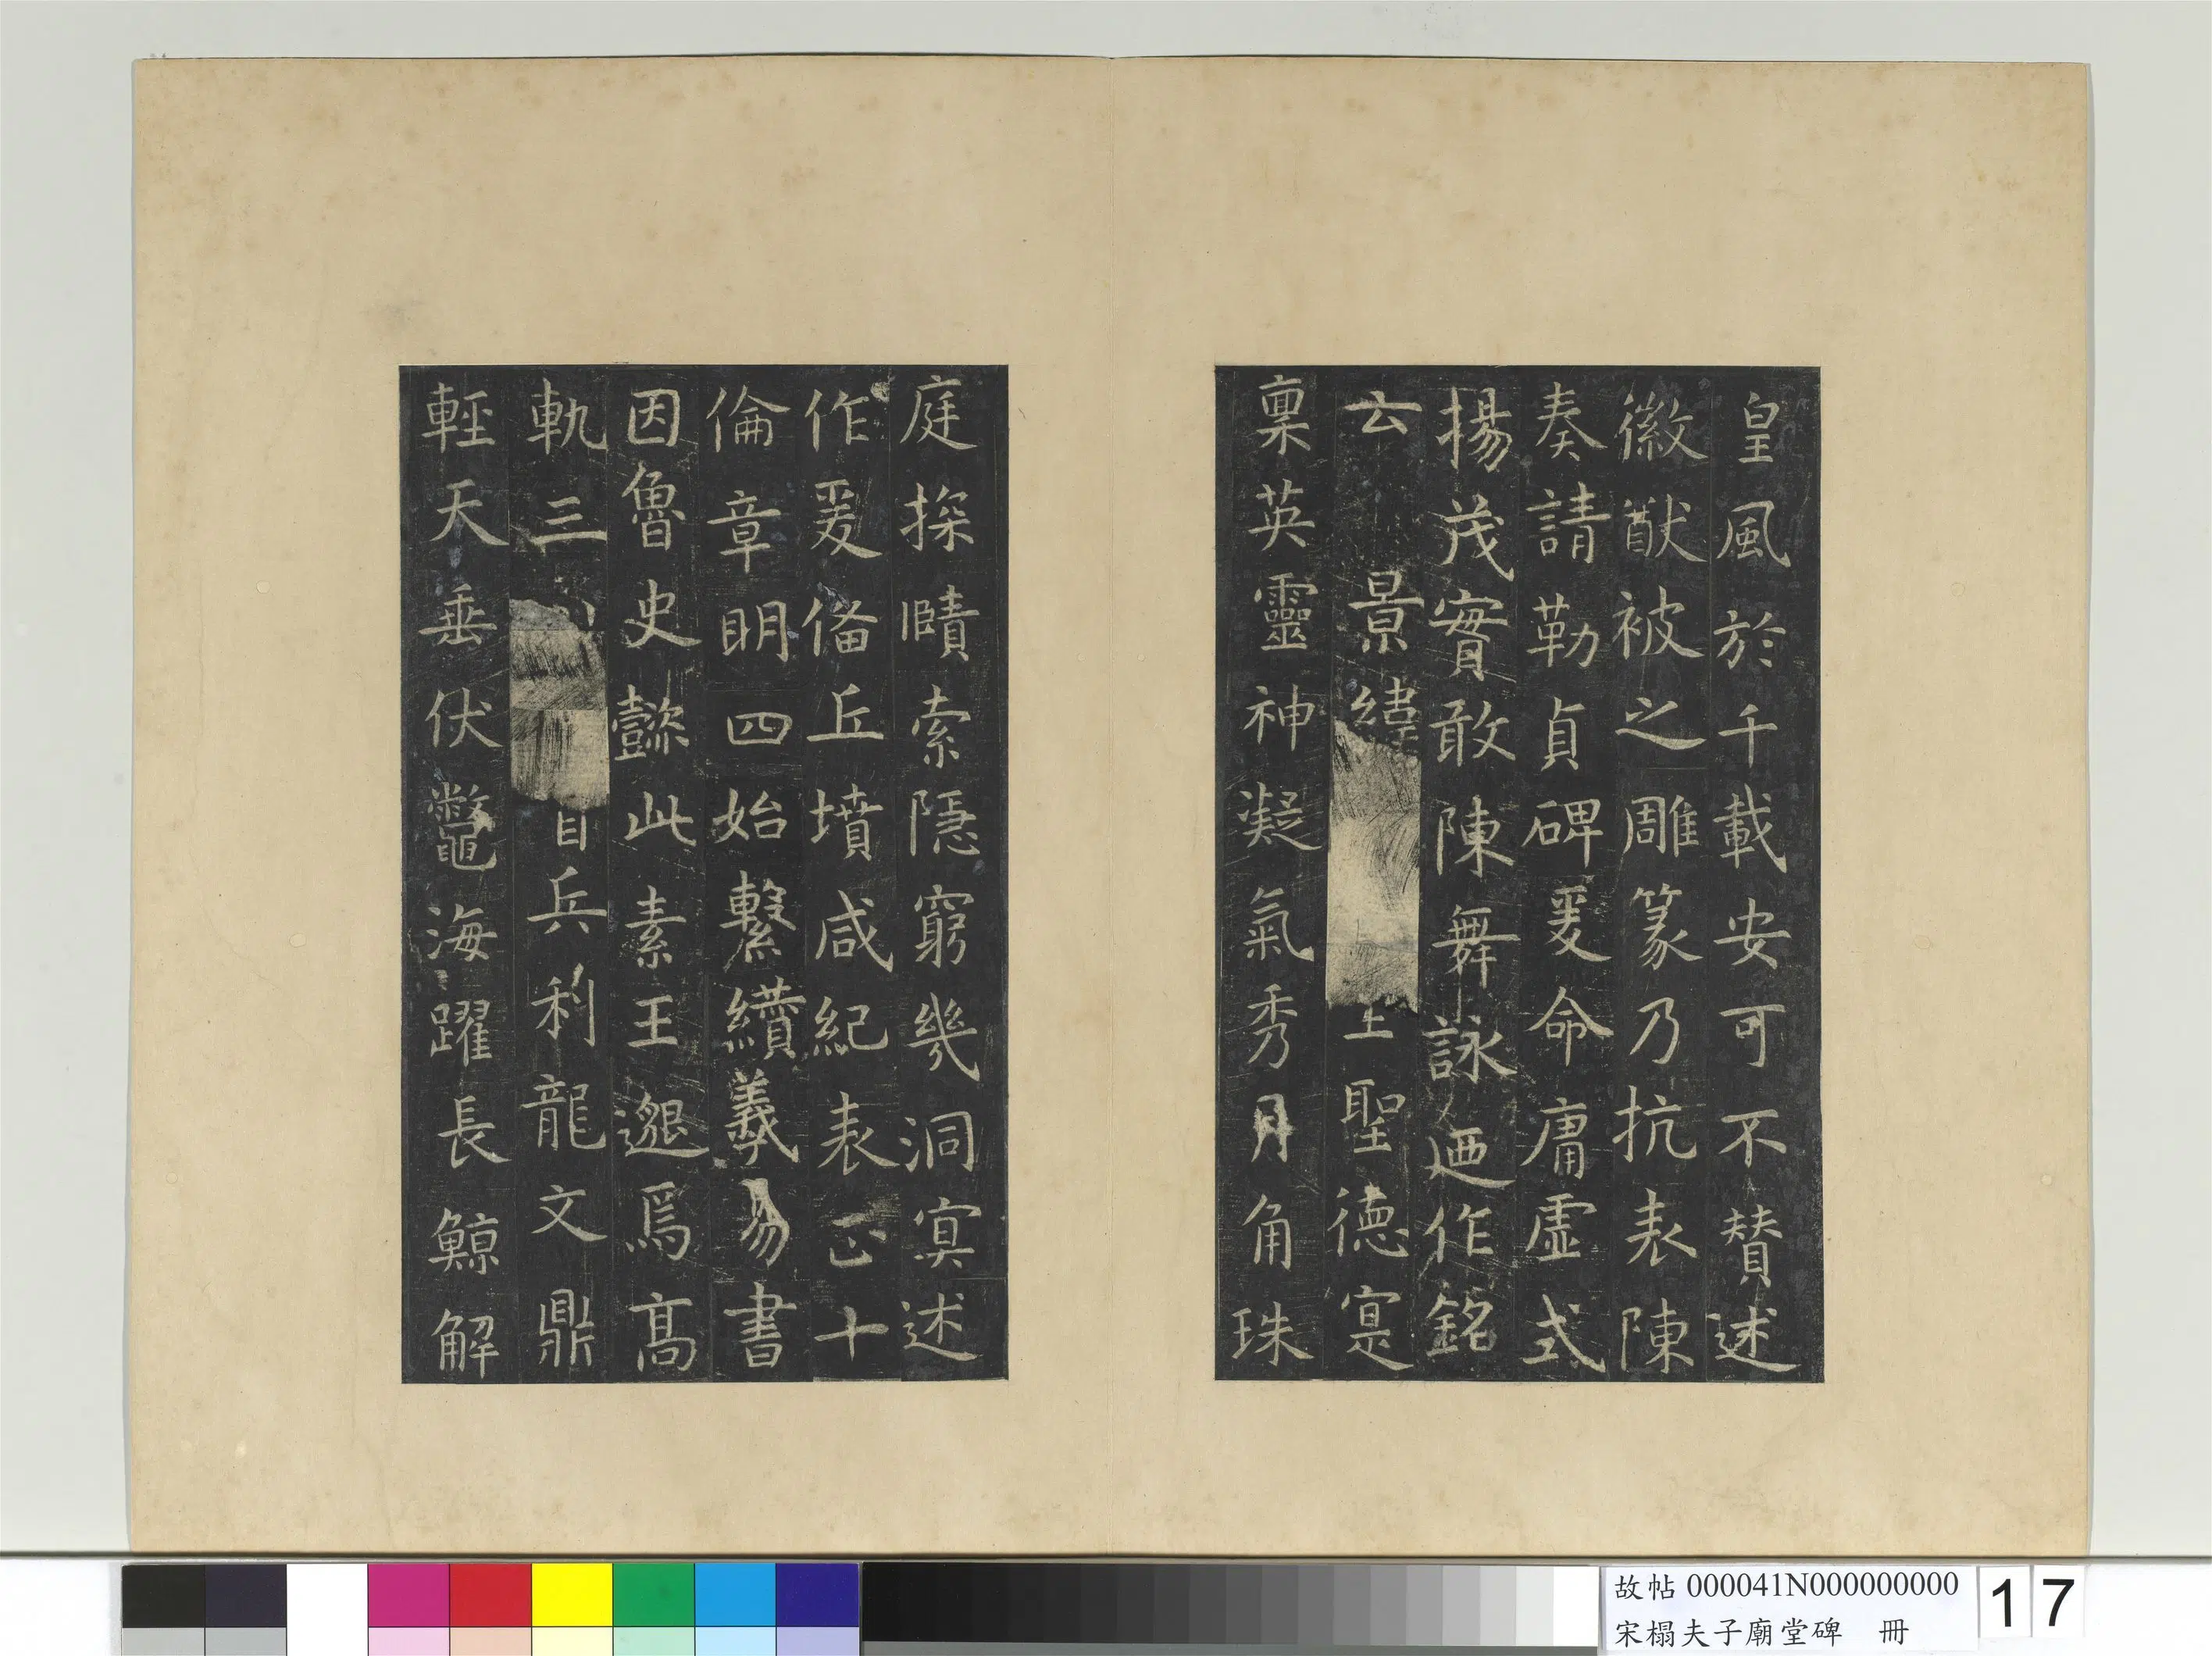 皇風於千載安可不贊述
徽猷被之雕篆乃抗表陳
奏請勒貞碑爰命庸虛式
揚茂實敢陳舞詠迺作銘
云 景緯 聖德寔
稟英靈神凝氣秀月角珠
庭探賾索隱窮幾洞寘述
作爰俻丘墳咸紀表正十
倫章明四始繫纘羲易書
因魯史懿此素王邈焉高
軌三 兵利龍文鼎
輕天垂伏鼈海躍長鯨解
故帖 000041N000000000
宋榻夫子廟堂碑 冊
17